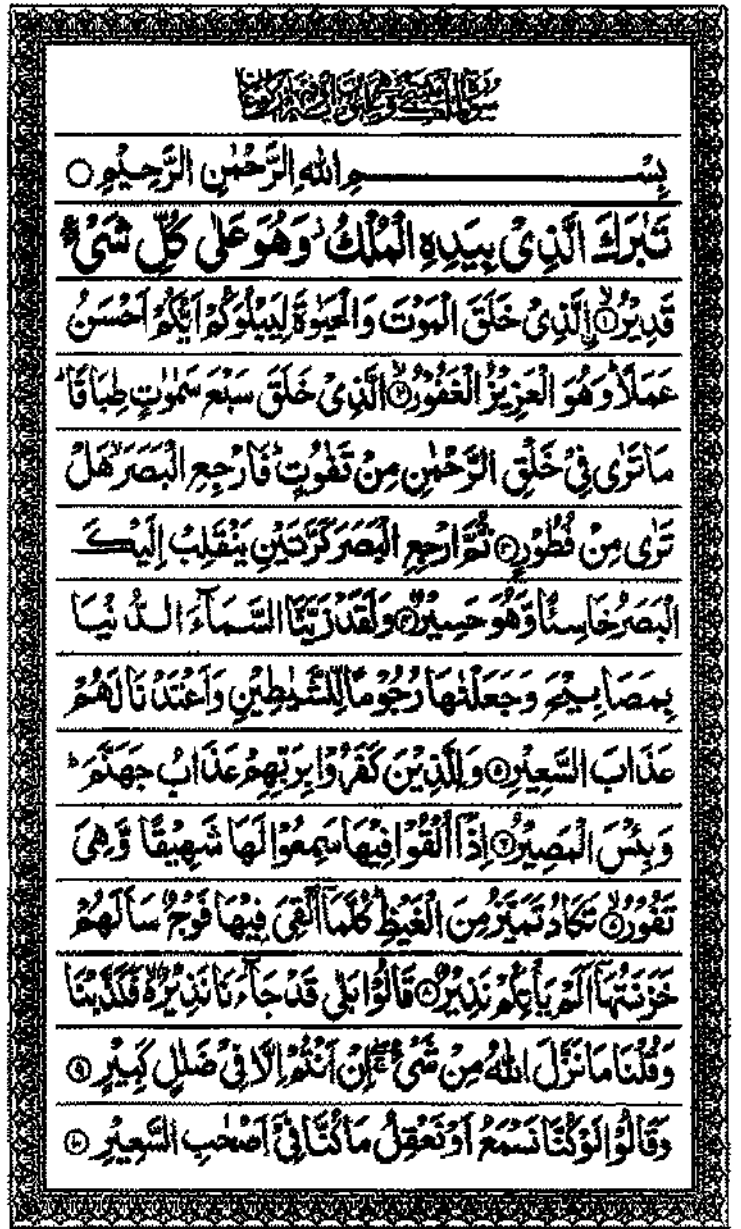 بِسْمِ اللهِ الرَّحْمٰنِ الرَّحِيْمِ ○
تَبٰرَكَ الَّذِيْ بِيَدِهِ الْمُلْكُ ۫ وَهُوَ عَلٰى كُلِّ شَيْءٍ
قَدِيْرُ ۙ﴿۱﴾ اِ۟لَّذِيْ خَلَقَ الْمَوْتَ وَالْحَيٰوةَ لِيَبْلُوَكُمْ اَيُّكُمْ اَحْسَنُ
عَمَلًا ؕ وَهُوَ الْعَزِيْزُ الْغَفُوْرُ ۙ﴿۲﴾ الَّذِيْ خَلَقَ سَبْعَ سَمٰوٰتٍ طِبَاقًا ؕ
مَا تَرٰى فِيْ خَلْقِ الرَّحْمٰنِ مِنْ تَفٰوُتٍ ؕ فَارْجِعِ الْبَصَرَ ۙ هَلْ
تَرٰى مِنْ فُطُوْرٍ ﴿۳﴾ ثُمَّ ارْجِعِ الْبَصَرَ كَرَّتَيْنِ يَنْقَلِبْ اِلَيْكَ
الْبَصَرُ خَاسِئًا وَّهُوَ حَسِيْرٌ ﴿۴﴾ وَلَقَدْ زَيَّنَّا السَّمَآءَ الدُّنْيَا
بِمَصَابِيْحَ وَجَعَلْنٰهَا رُجُوْمًا لِّلشَّيٰطِيْنِ وَاَعْتَدْنَا لَهُمْ
عَذَابَ السَّعِيْرِ ﴿۵﴾ وَلِلَّذِيْنَ كَفَرُوْا بِرَبِّهِمْ عَذَابُ جَهَنَّمَ ؕ
وَبِئْسَ الْمَصِيْرُ ﴿۶﴾ اِذَاۤ اُلْقُوْا فِيْهَا سَمِعُوْا لَهَا شَهِيْقًا وَّهِيَ
تَفُوْرُ ۙ﴿۷﴾ تَكَادُ تَمَيَّزُ مِنَ الْغَيْظِ ؕ كُلَّمَاۤ اُلْقِيَ فِيْهَا فَوْجٌ سَاَلَهُمْ
خَزَنَتُهَاۤ اَلَمْ يَاْتِكُمْ نَذِيْرٌ ﴿۸﴾ قَالُوْا بَلٰى قَدْ جَآءَنَا نَذِيْرٌ ۙ۬ فَكَذَّبْنَا
وَقُلْنَا مَا نَزَّلَ اللهُ مِنْ شَيْءٍ ۖۚ اِنْ اَنْتُمْ اِلَّا فِيْ ضَلٰلٍ كَبِيْرٍ ﴿۹﴾
وَقَالُوْا لَوْ كُنَّا نَسْمَعُ اَوْ نَعْقِلُ مَا كُنَّا فِيْۤ اَصْحٰبِ السَّعِيْرِ ﴿۱۰﴾